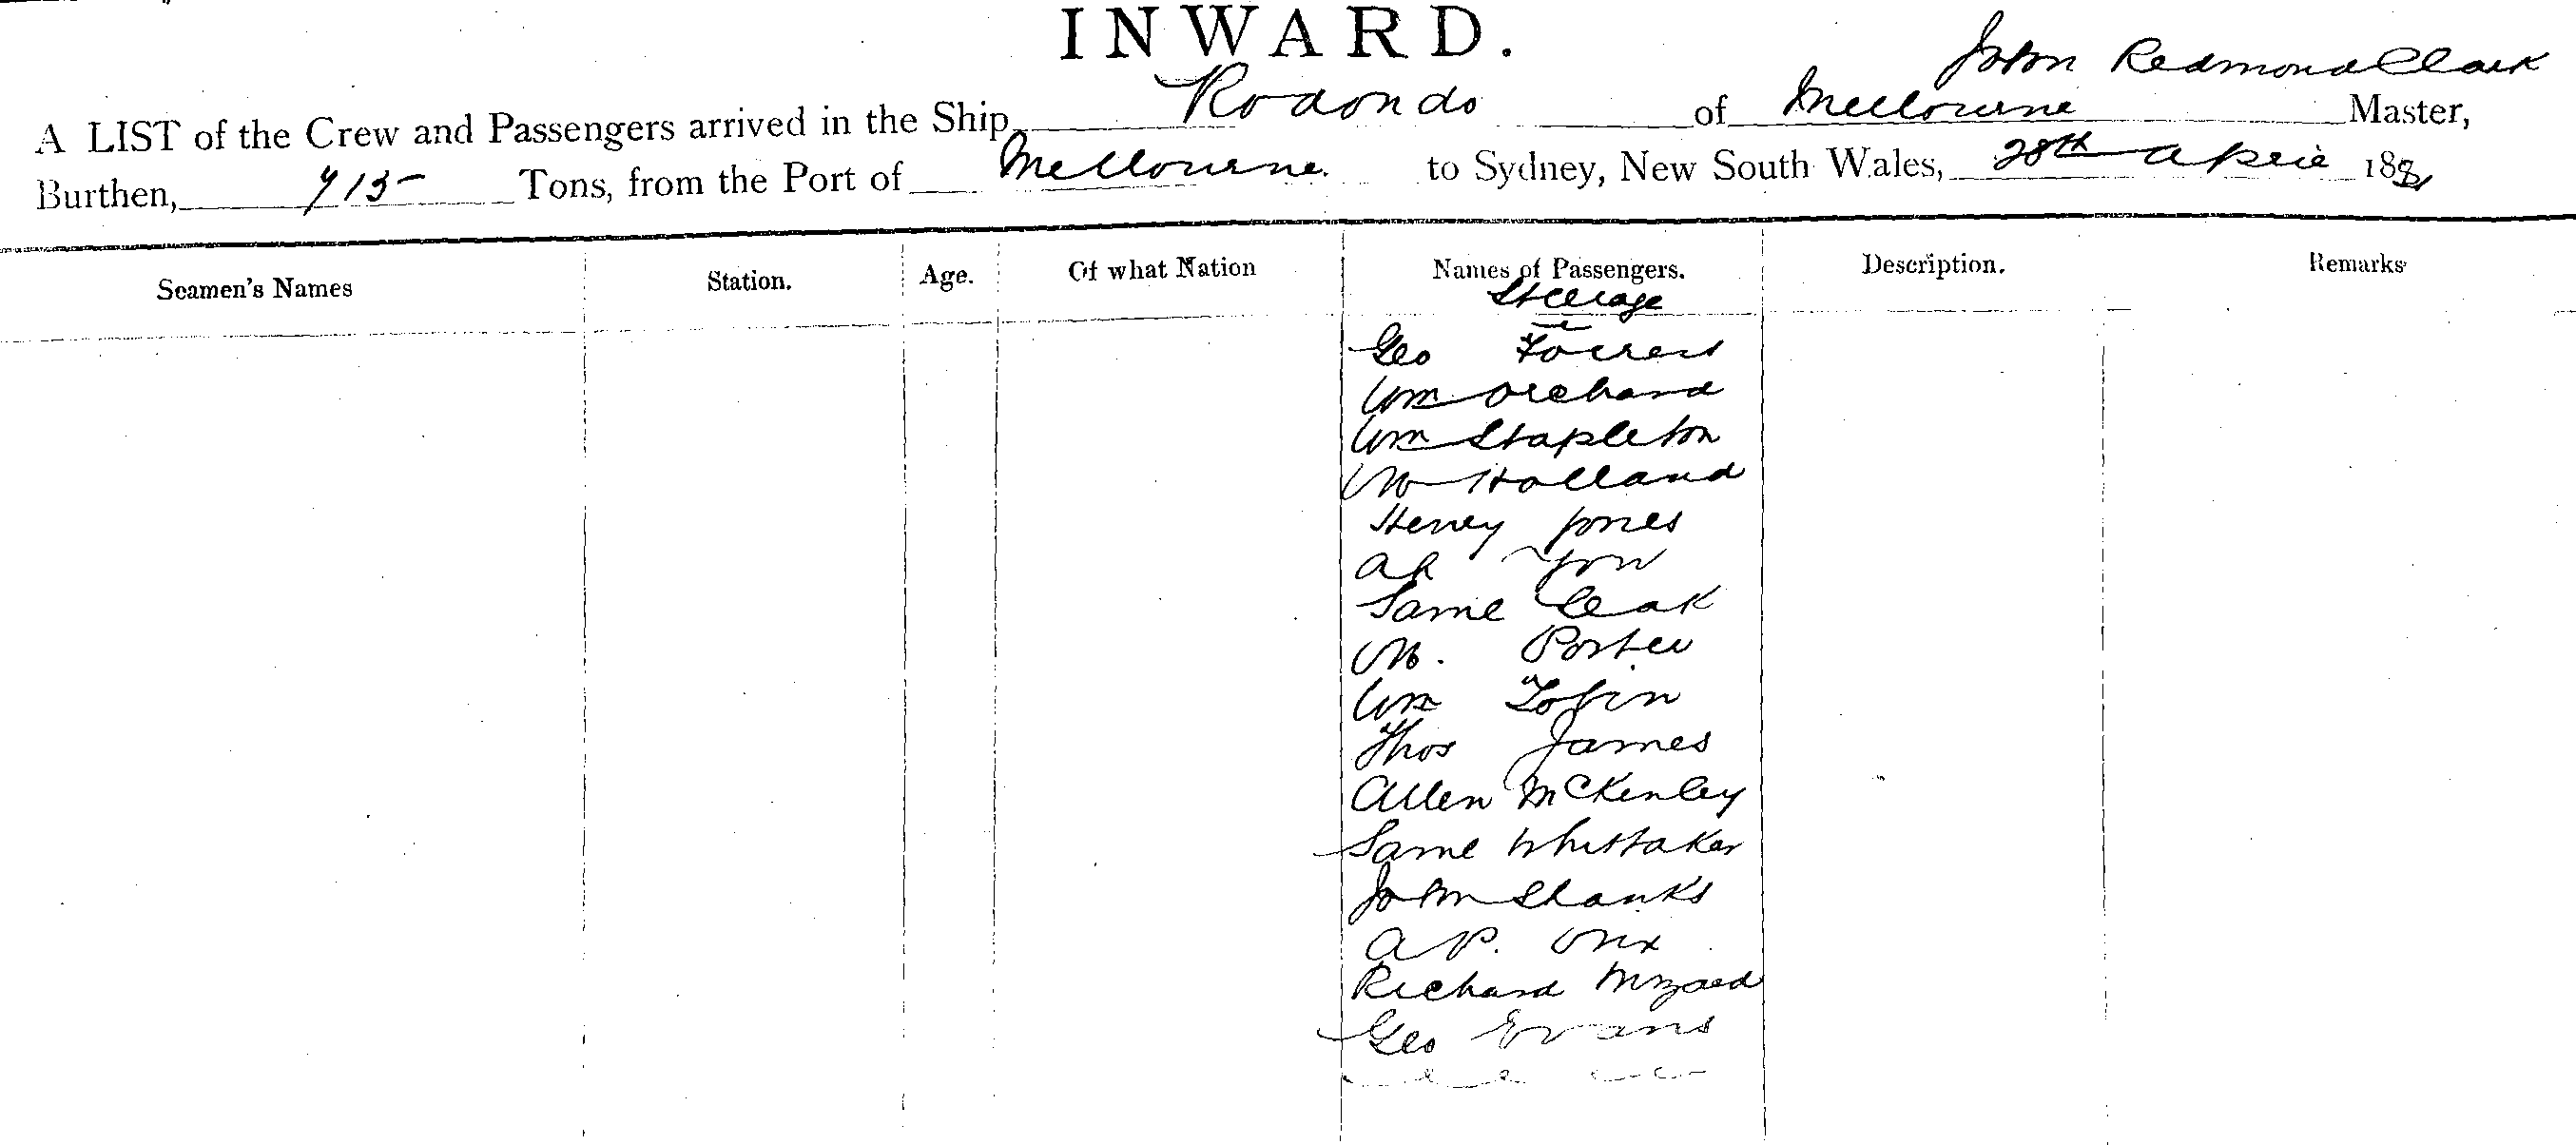 INWARD.
John Redmond Clark
A LIST of the Crew and Passengers arrived in the Ship Rodondo of Melbourne Master,
Burthen, 715 Tons, from the Port of Melbourne. to Sydney, New South Wales, 28th April 188
Seamen's Names Station. Age. Of what Nation Names of Passengers. Description. Remarks
Steerage
Geo Forrest
Wm Orchard
Wm Stapleton
W Holland
Henry Jones
Ah You
Saml Leak
W. Porter
Wm Tobin
Thos James
Allen McKenley
Saml Whittaker
John Shanks
A P.
Richard
Geo Evans